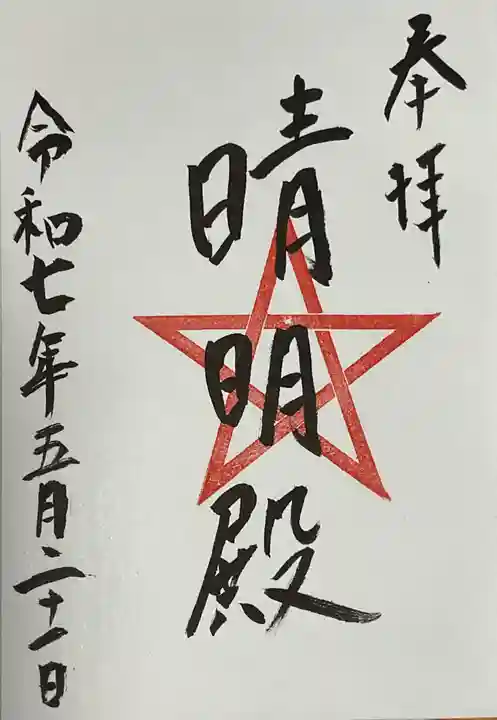 奉拝
晴明殿
令和七年五月二十一日